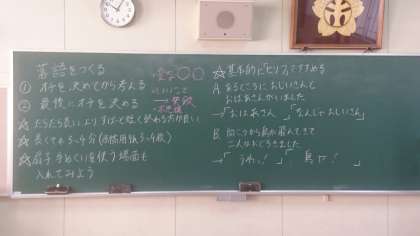 落語をつくる
① オチを決めてから考える
② 最後にオチを決める
☆だらだら長いよりすぱっと短く終わる方が良い
☆長くても3~4分(原稿用紙3~4枚)
☆扇子手ぬぐいを使う場面も
入れてみよう
いいこと
→失敗
☆基本的に「セリフ」ですすめる
A あるところにおじいさんと
おばあさんがいました。
→「おばあさん」「なんじゃおじいさん」
B 向こうから鳥が飛んできて
二人はおどろきました。
→「うわっ!」「鳥じゃ!」